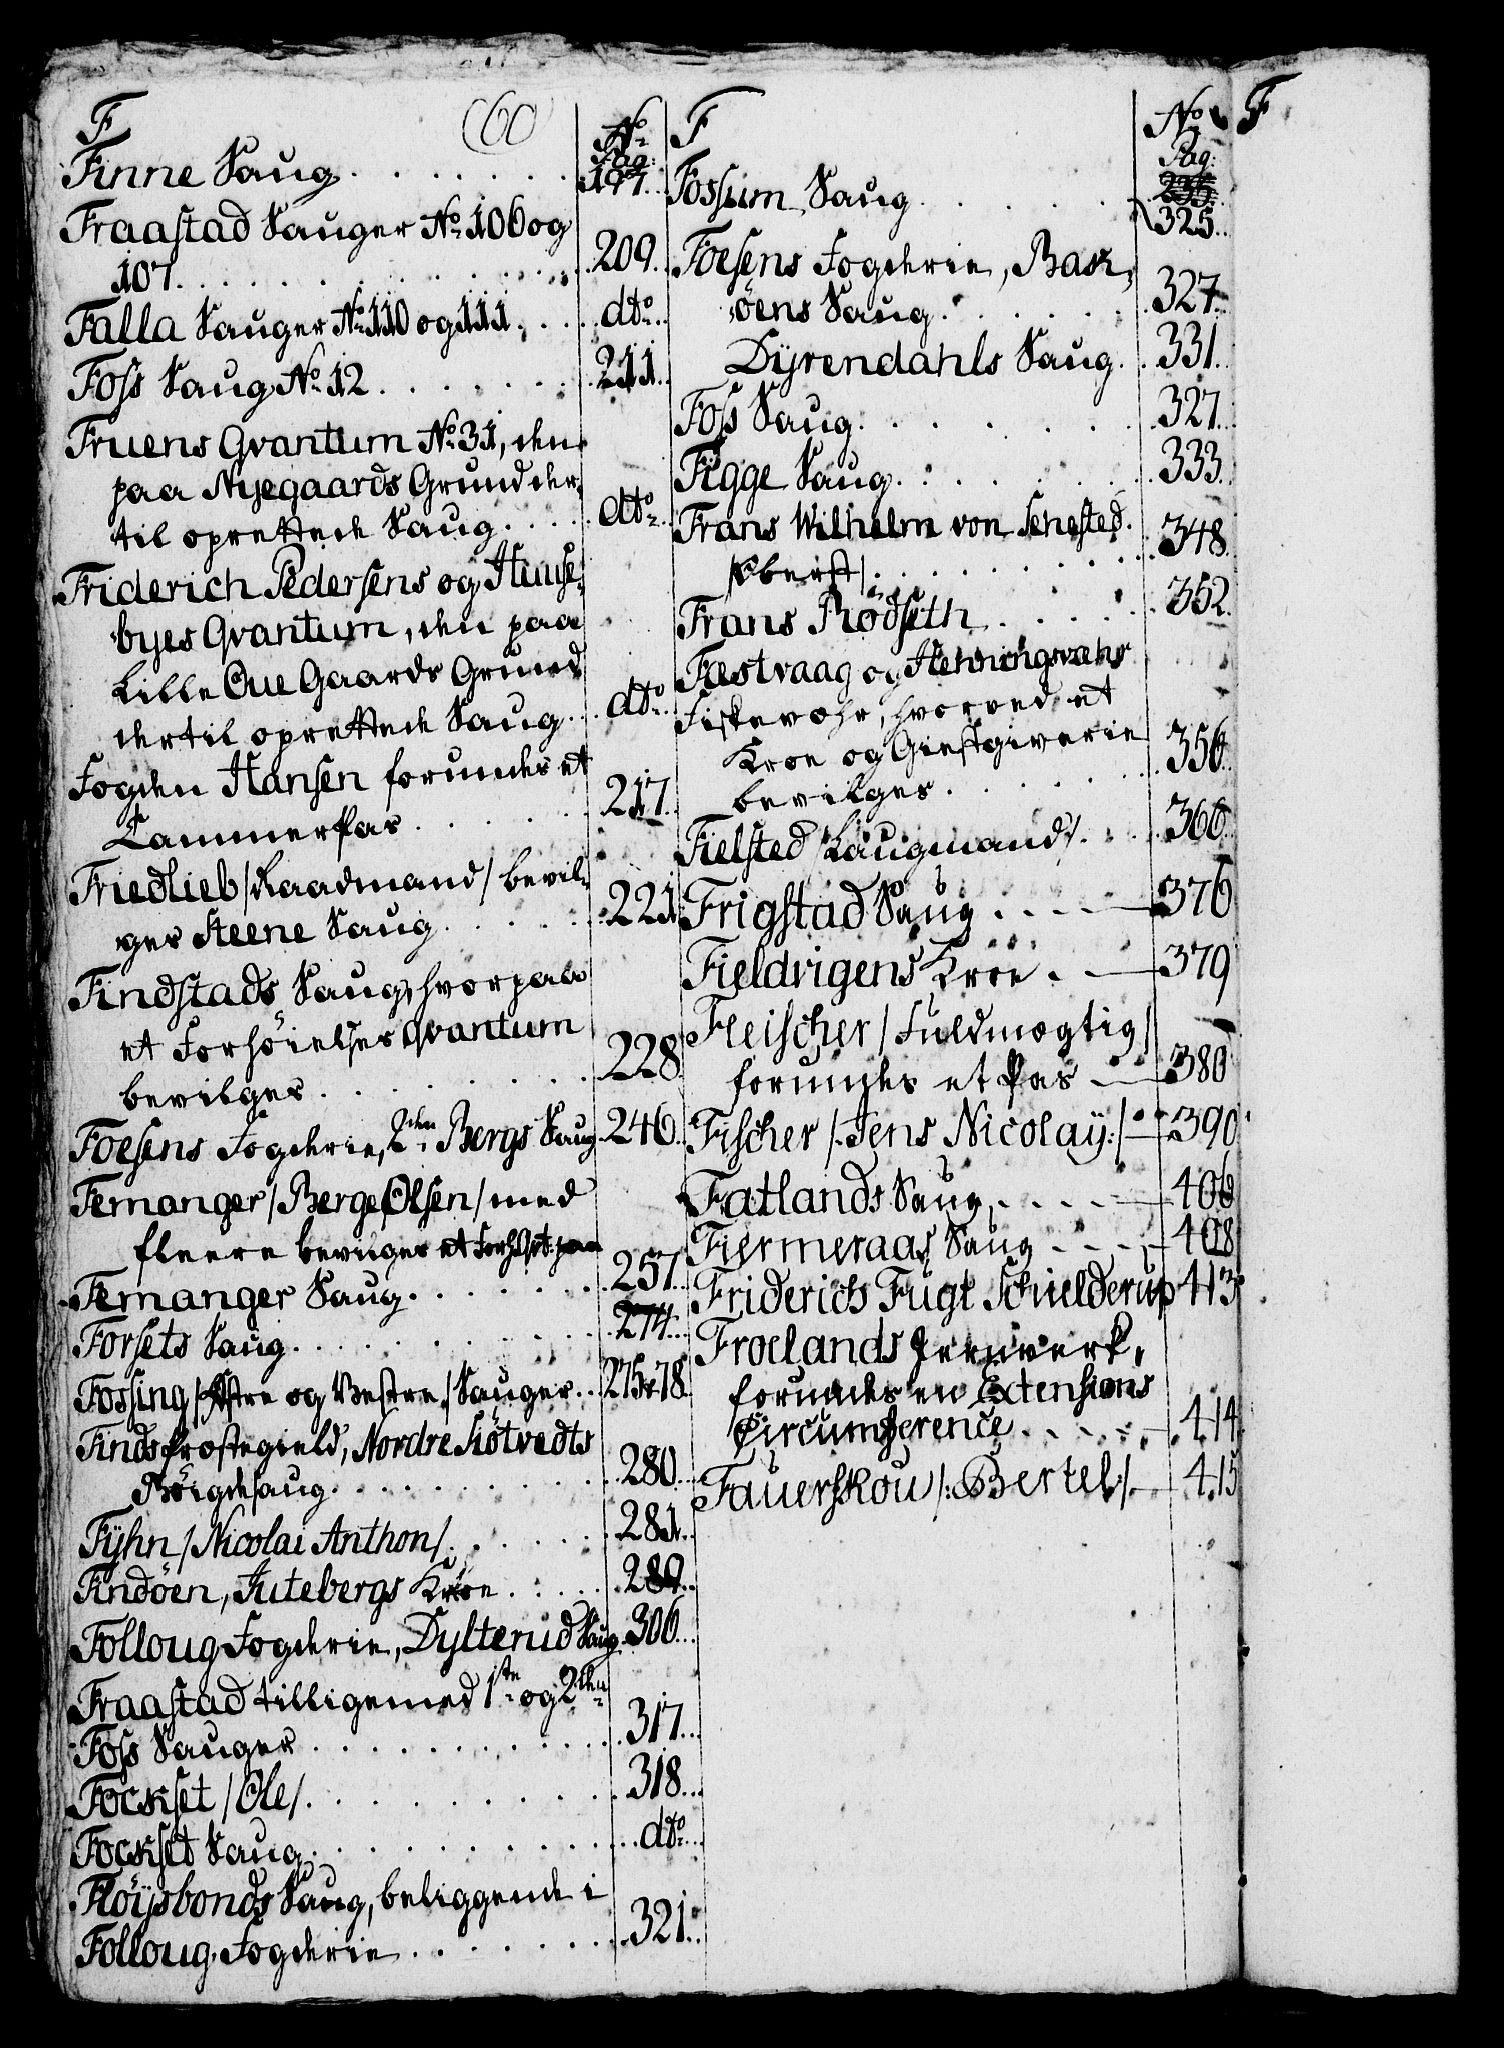 F
(60
No
Pag:
Finne Saug . . . . . . . 197.
Fraastad Sauger No 106 og
107. . . . . . . . . 209.
Falla Sauger No 110 og 111 . . . . dto
Foss Saug No 12 . . . . . . 211.
Fruens Qvantum No 31, den
paa Nyegaards Grund der,
til oprettede Saug . . . . dto
Friderich Pedersens og Huuse,
byes Qvantum, den paa
Lille Oue Gaards Grund
dertil oprettede Saug . . . dto
Fogden Hansen forundes et
CammerPas . . . . . . 217.
Friedlieb /Raadmand/ bevil,
ges Steene Saug . . . . . 221.
Findstads Saug, hvorpaa
et Forhöielses Qvantum
bevilges . . . . . . . . 228
Foesens Fogderie, 2den Bergs Saug 246.
Femanger /Berge Olsen/ med
fleere bevilges et Forhöi: paa 257.
Femanger Saug . . . . . . 274...
Forsets Saug . . . . . . .
Fossing /Östre og Vestre/ Sauger . . 275 & 78
Finds Præstegield, Nordre Fiötvedts
Böigdesaug . . . . . . . 280...
Fÿhn /Nicolai Anthon/ . . . . . 281..
Findöen, Jutebergs Kroe . . . . . 289..
Folloug Fogderie, Dylterud Saug 306...
Fraastad tilligemed 1ste og 2den
Foss Sauger . . . . . . . 317...
Fockset /Ole/ . . . . . . . 318...
Fockset Saug . . . . . . . dto
Flöysbonds Saug, beliggende i
Folloug Fogderie . . . . . . 321...
F
No
Pag:
235.
Fossum Saug . . . . . . 325..
Foesens Fogderie, Bask,
öens Saug . . . . . . 327.
Dÿrendahls Saug . . 331.
Foss Saug . . . . . . . 327.
Figge Saug . . . . . . 333.
Frans Wilhelm von Sehested
/Oberst/ . . . . . . . 348.
Frans Rödseth . . . . . 352.
Fæstvaag og Henningsvahr
Fiskevohr, hvorved et
Kroe og Giestgiverie
bevilges . . . . . . 356.
Fielsted /Laugmand/ . . . 366.
Frigstad Saug . . . . — 376
Fieldvigens Kroe . — 379
Fleischer /Fuldmægtig/
forundes et Pas — 380
Fischer /: Jens Nicolaÿ :/ — 390
Fatlands Saug . . . . — 406
Fiermeraas Saug . . . . — 408
Friderich Fugt Schielderup 413
Froelands Jernverk,
forundes en Extensions
Circumference . . . . — 414
Fauerskou /: Bertel :/ — 415
F